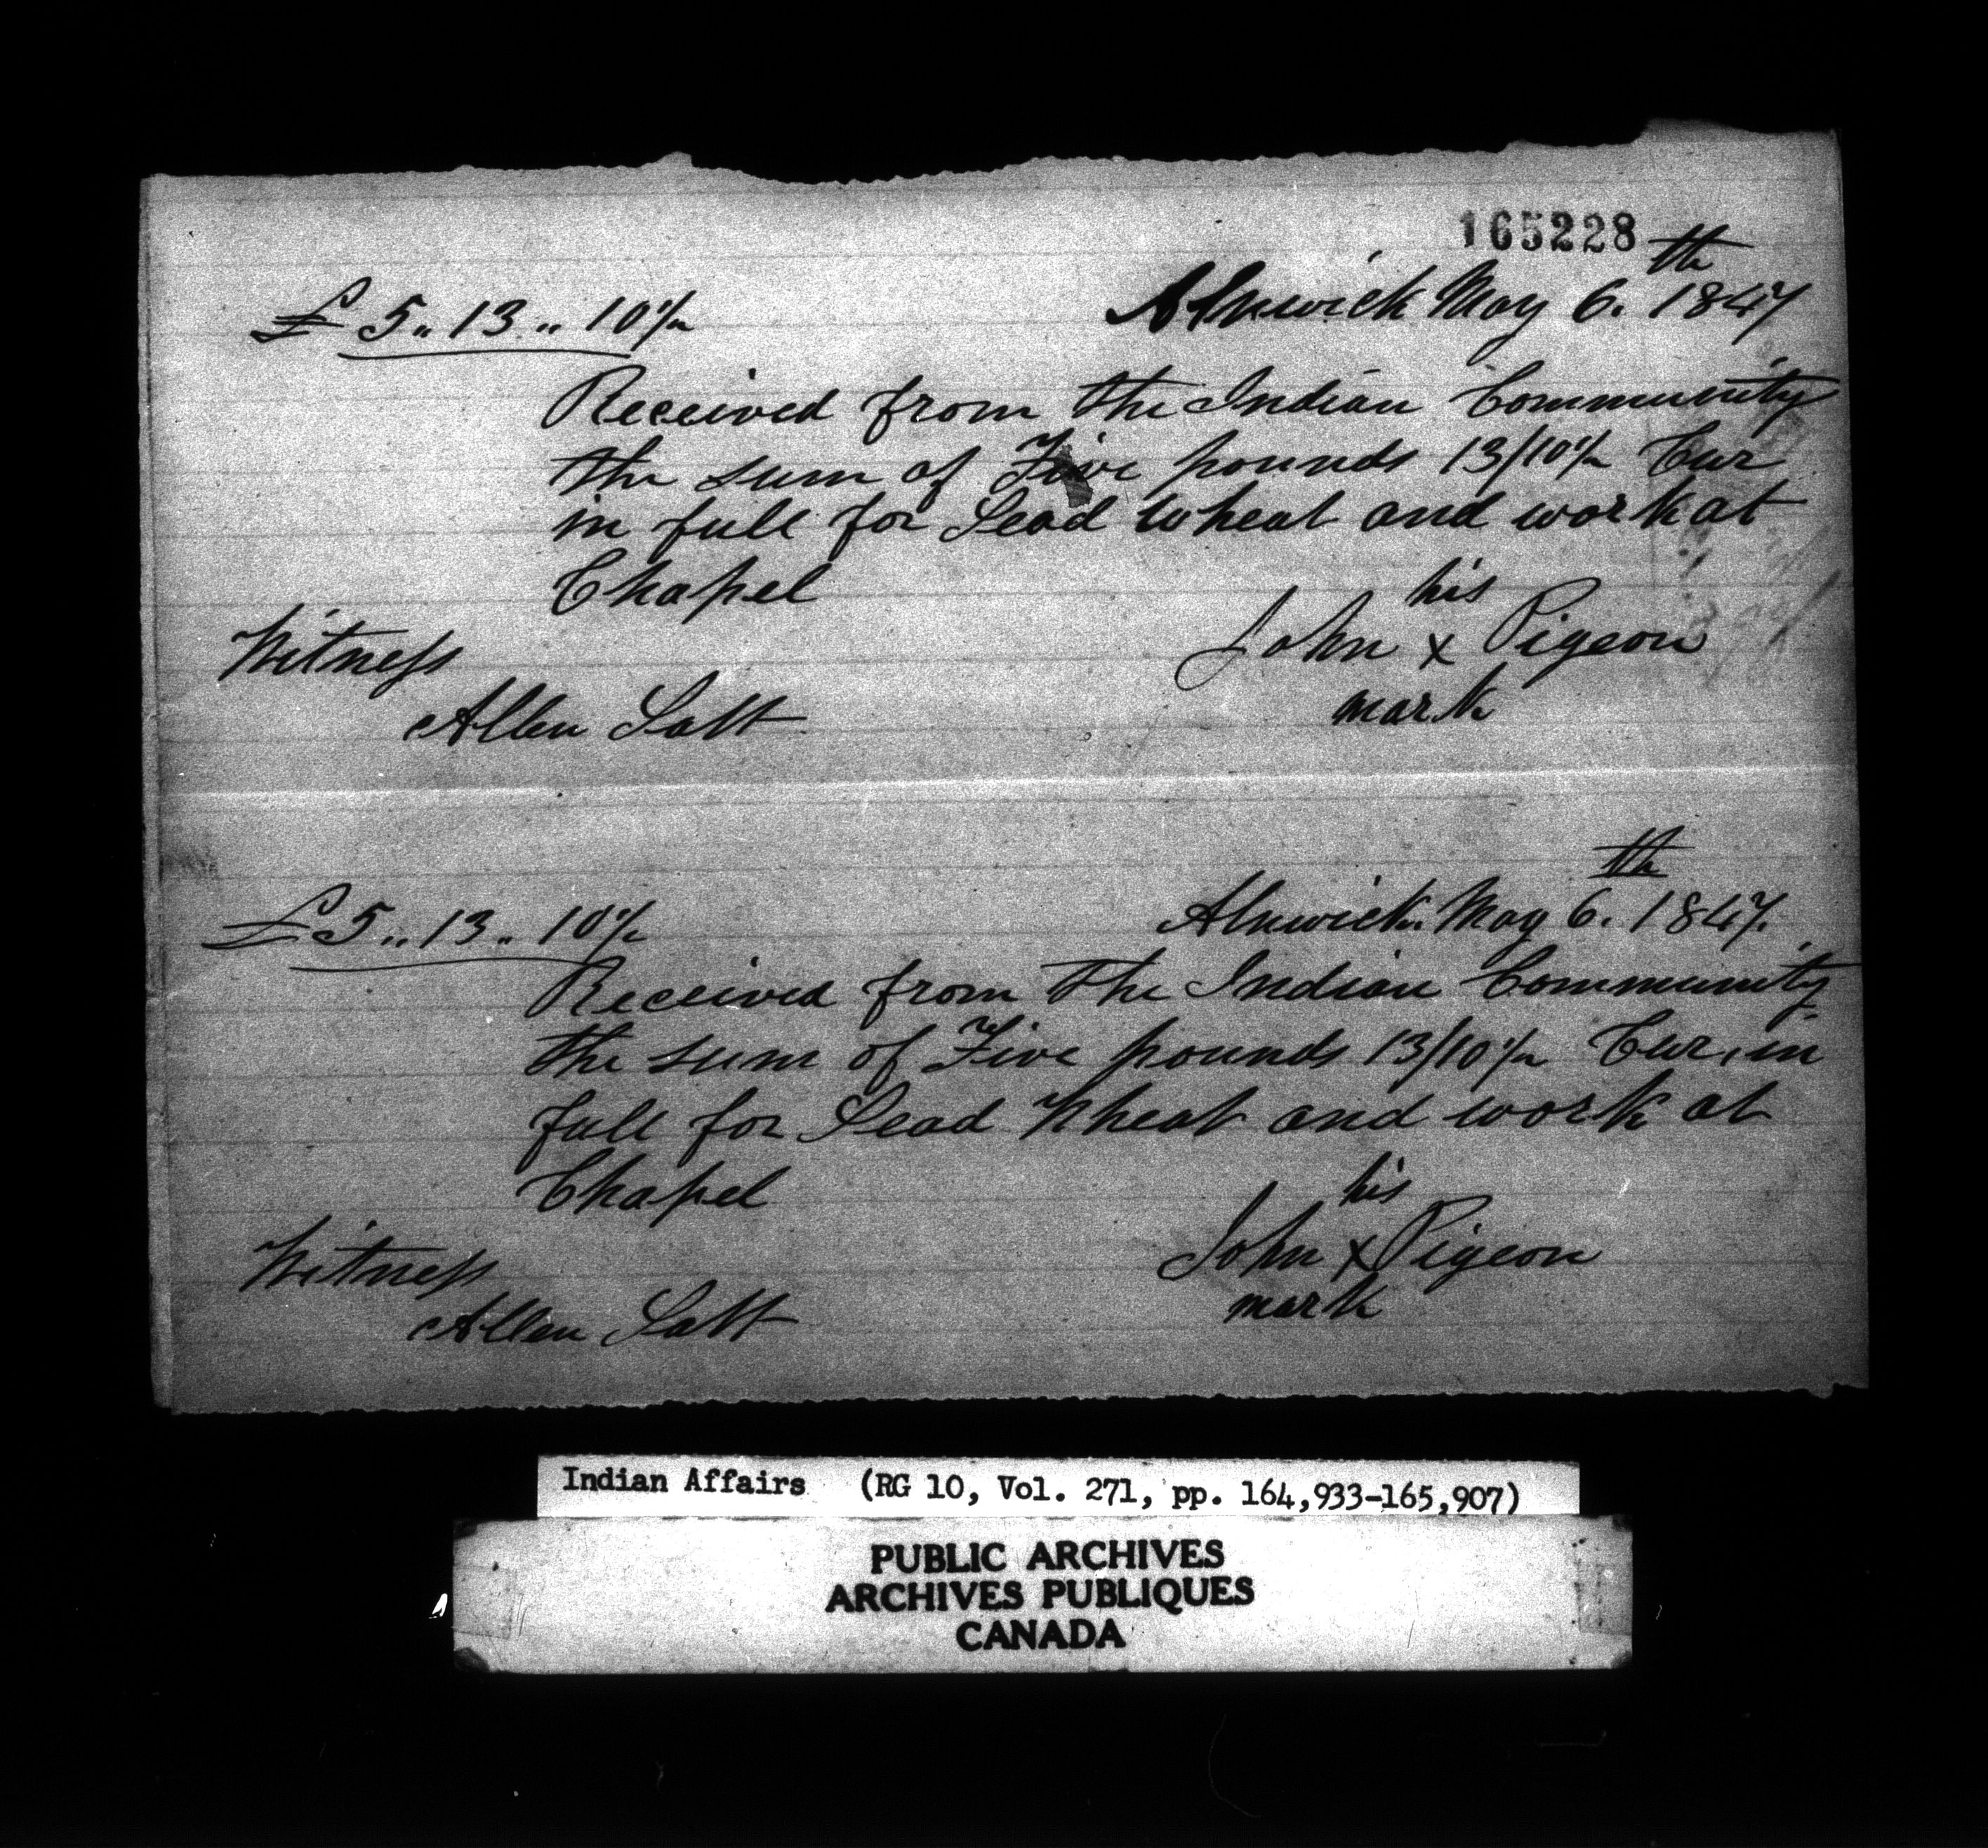 165228
£ 5,, 13 ,, 10 1/2
Alnwick May 6.th 1847
Received from the Indian Community
the sum of Five pounds 13/10 1/2 Cur
in full for Sead Wheat and work at
Chapel
his
Witness
John x Pigeon
mark
Allen Salt
£ 5,, 13 ,, 10 1/2
Alnwick. May 6.th 1847.
Received from the Indian Community
the sum of Five pounds 13/10 1/2 Cur, in
full for Sead Wheat and work at
Chapel
his
Witness
John x Pigeon
mark
Allen Salt
Indian Affairs (RG 10, Vol. 271, pp. 164,933-165,907)
PUBLIC ARCHIVES
ARCHIVES PUBLIQUES
CANADA